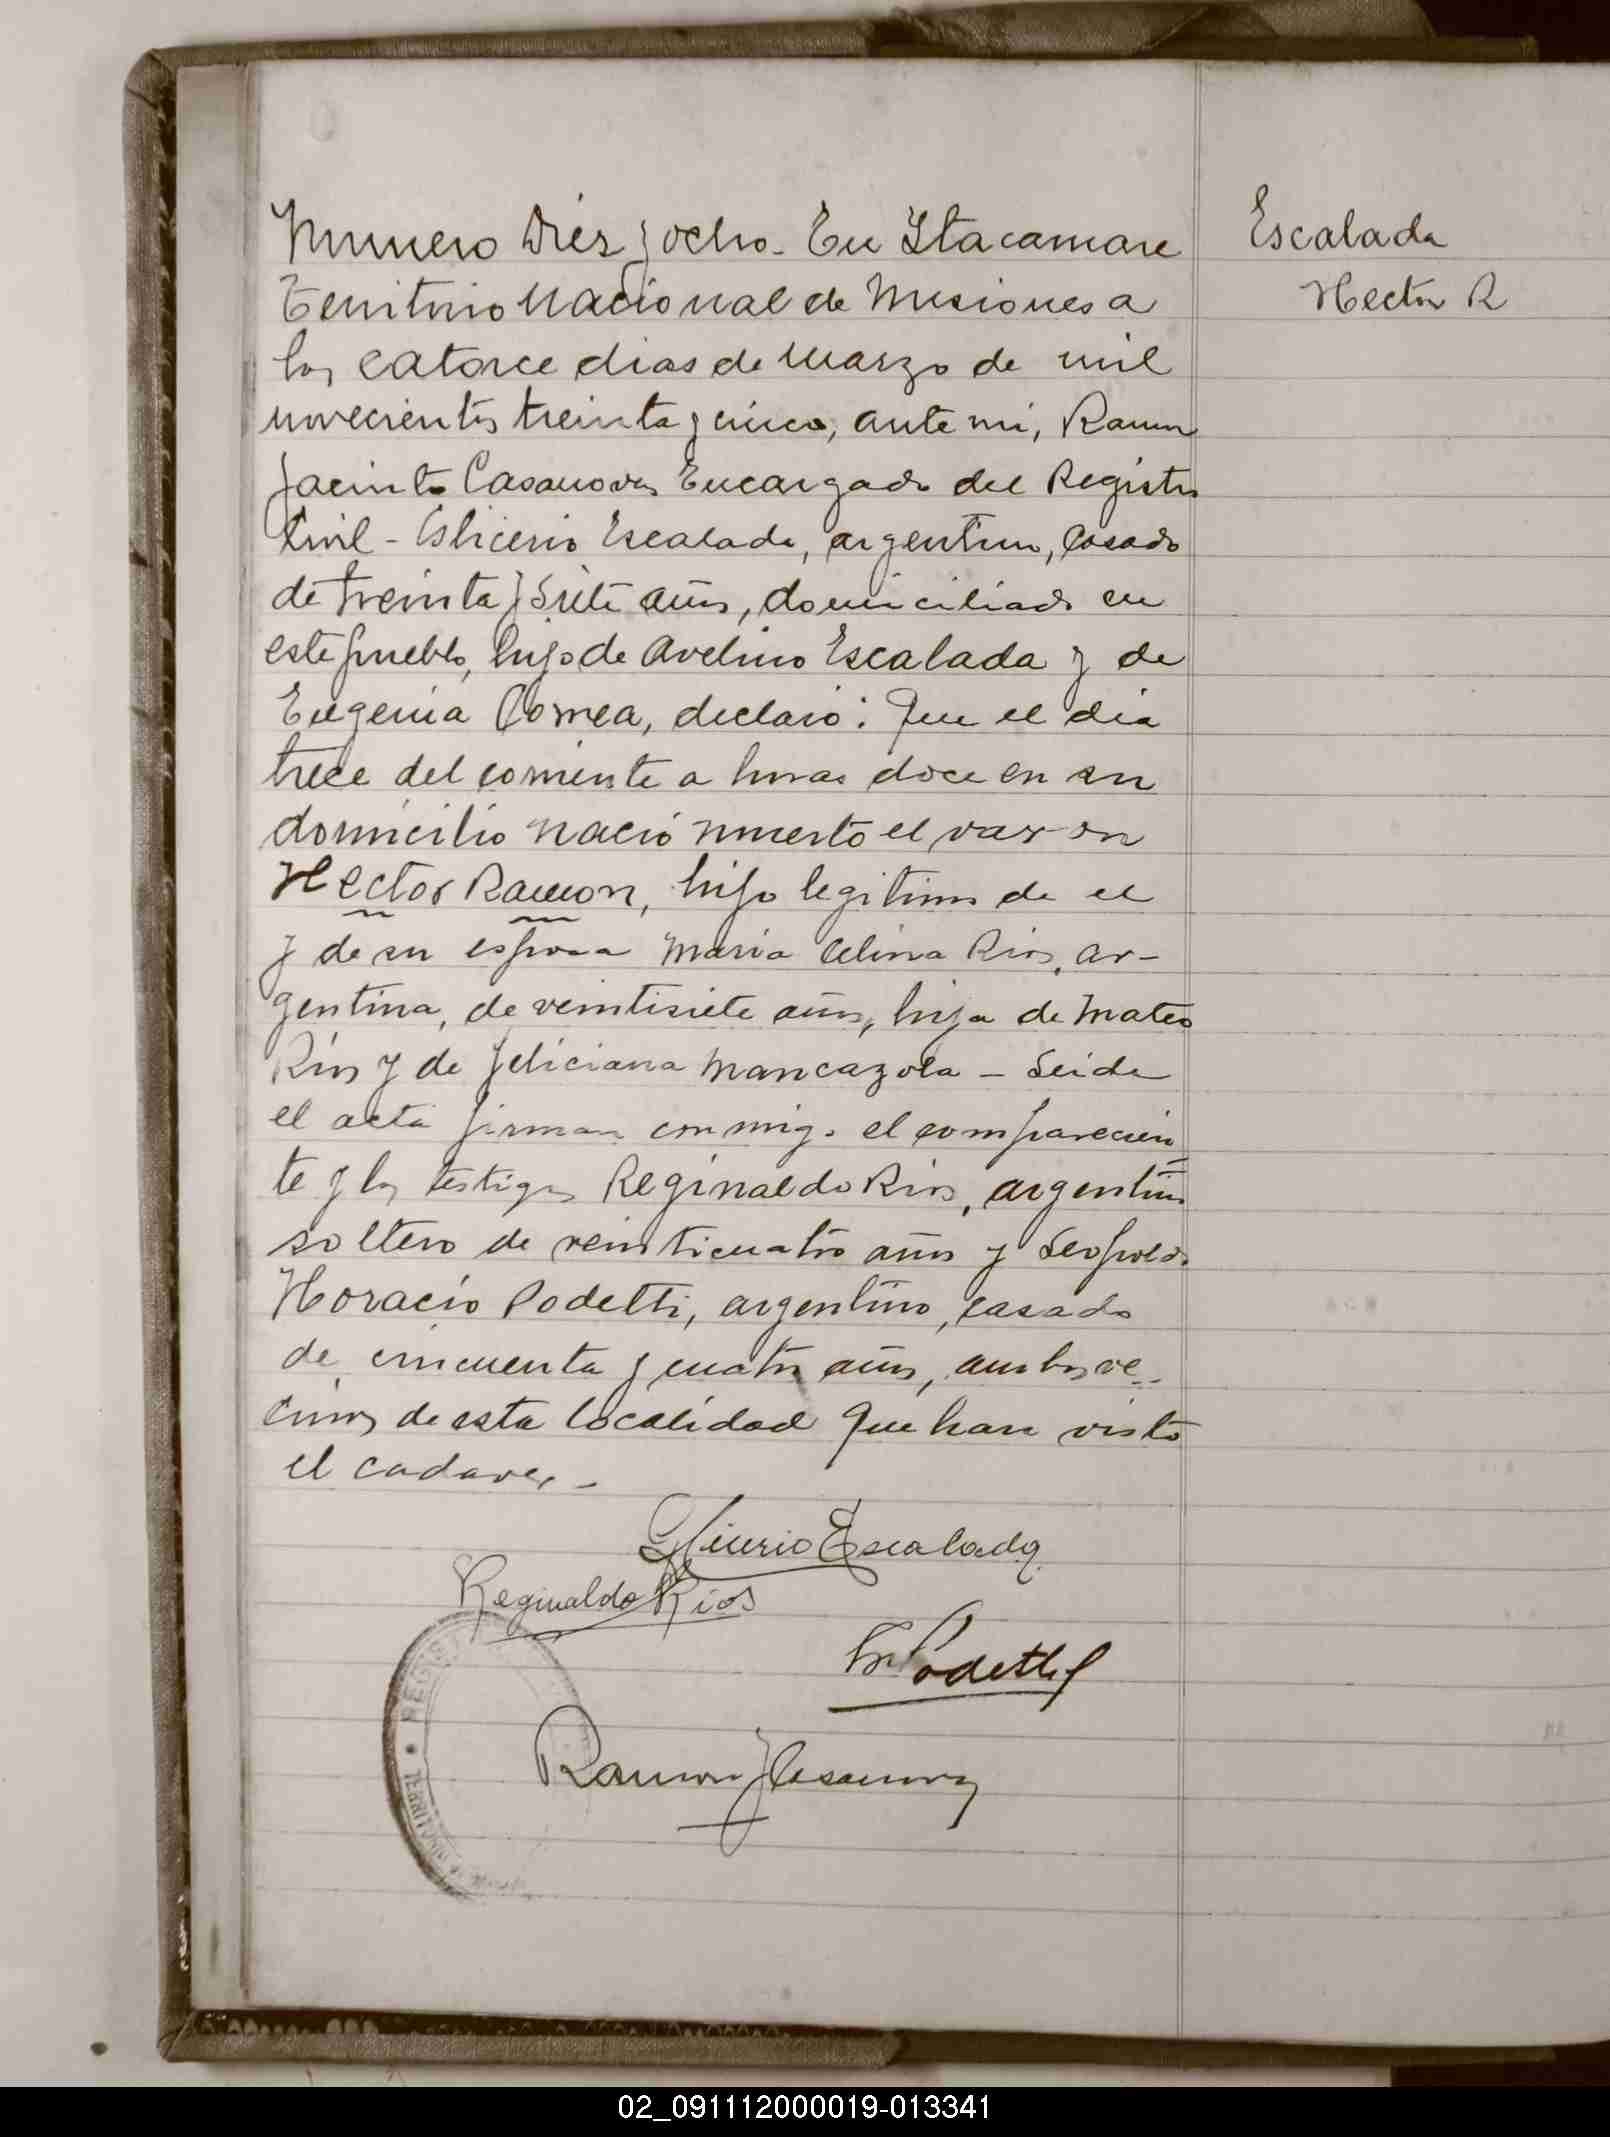 Numero Diez y ocho - En Itacaruare
Territorio Nacional de Misiones a
los catorce dias de Marzo de mil
novecientos treinta y cinco, ante mi, Ramon
Jacinto Casanova, Encargado del Registro
Civil - Glicerio Escalada, argentino, casado
de treinta y siete años, domiciliado en
este pueblo, hijo de Avelino Escalada y de
Eugenia Correa, declaró: Que el dia
trece del corriente a horas doce en su
domicilio nació muerto el varon
Hector Ramon, hijo legitimo de el
y de su esposa Maria Celina Rios, ar-
gentina, de veintisiete años, hija de Mateo
Rios y de Feliciana Mancazola - Leida
el acta firman conmigo el comparecien
te y los testigos Reginaldo Rios, argentino
soltero de veinticuatro años y Leopoldo
Horacio Podetti, argentino, casado
de cincuenta y cuatro años, ambos ve-
cinos de esta localidad que han visto
el cadaver. -
Escalada
Hector R
Glicerio Escalada
Reginaldo Rios
Podetti
Ramon J Casanova
REGIST
TERRITORIO
02_091112000019-013341